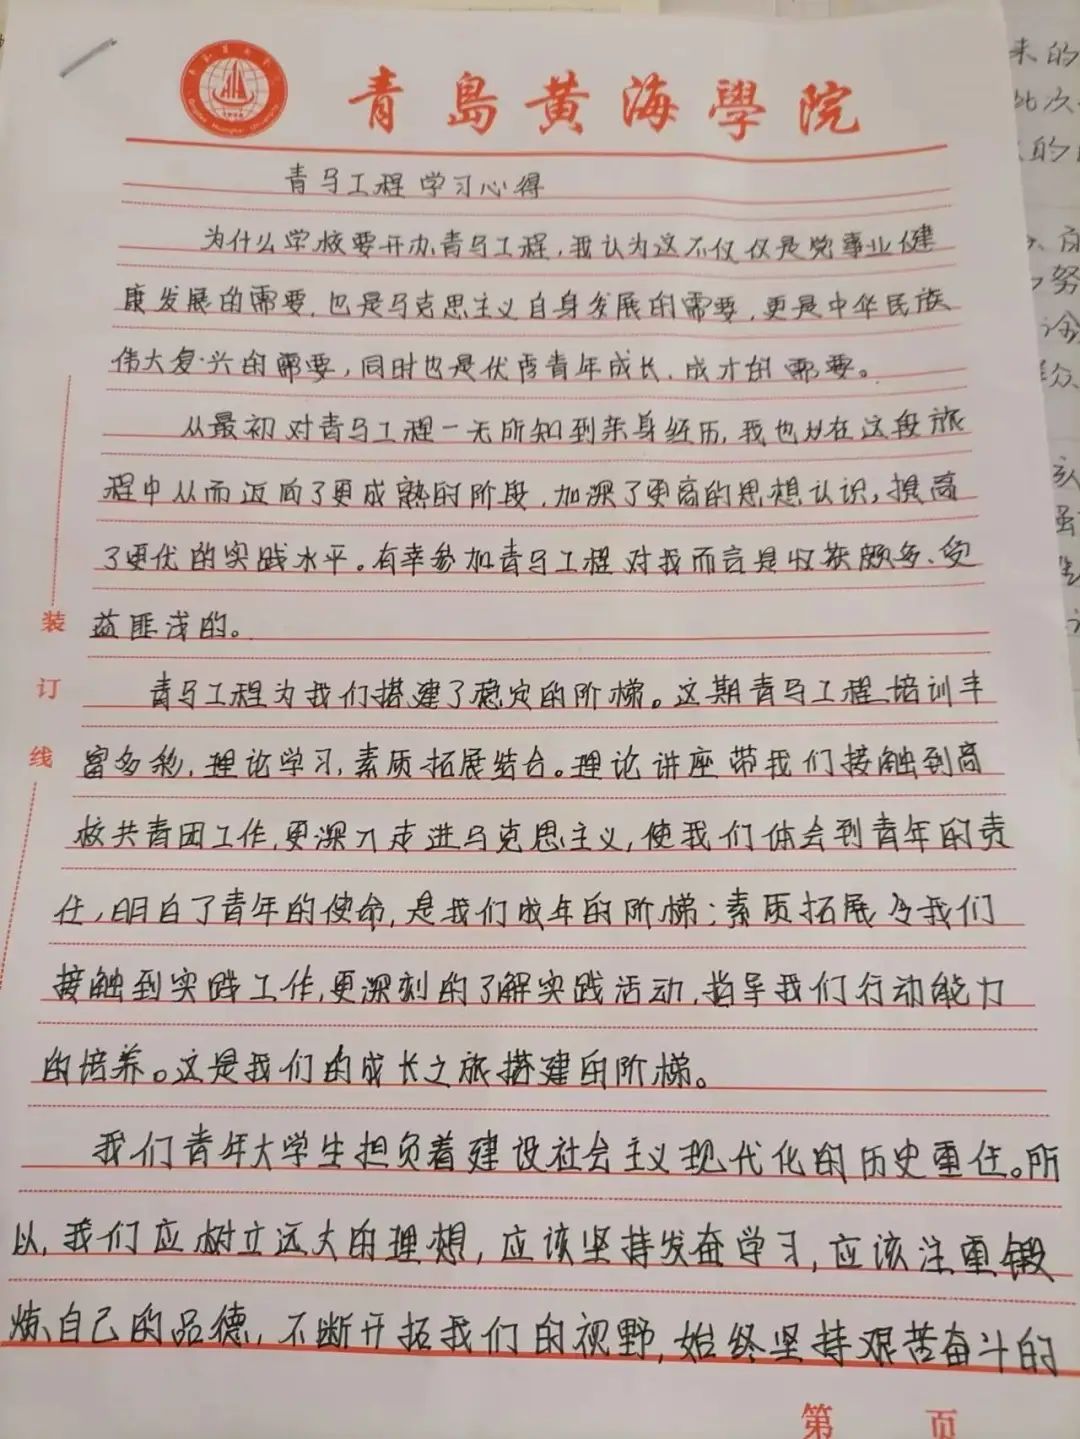 青島黄海學院
青马工程 学习心得
为什么学校要开办青马工程,我认为这不仅仅是党事业健
康发展的需要,也是马克思主义自身发展的需要,更是中华民族
伟大复兴的需要,同时也是优秀青年成长、成才的需要。
从最初对青马工程一无所知到亲身经历,我也从在这段旅
程中从而迈向了更成熟的阶段,加深了更高的思想认识,提高
了更优的实践水平。有幸参加青马工程对我而言是收获颇多、受
益匪浅的。
青马工程为我们搭建了稳定的阶梯。这期青马工程培训丰
富多彩,理论学习,素质拓展结合。理论讲座带我们接触到高
校共青团工作,更深入走进马克思主义,使我们体会到青年的责
任,明白了青年的使命,是我们成年的阶梯;素质拓展令我们
接触到实践工作,更深刻的了解实践活动,指导我们行动能力
的培养。这是我们的成长之旅搭建的阶梯。
我们青年大学生担负着建设社会主义现代化的历史重任。所
以,我们应树立远大的理想,应该坚持发奋学习,应该注重锻
炼自己的品德,不断开拓我们的视野,始终坚持艰苦奋斗的
装
订
线
第 页
来的
此次
的
努